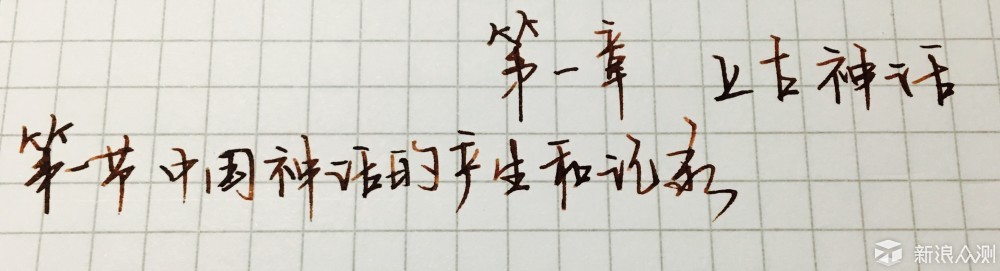 第一章 上古神话
第一节 中国神话的产生和记录
新浪众测